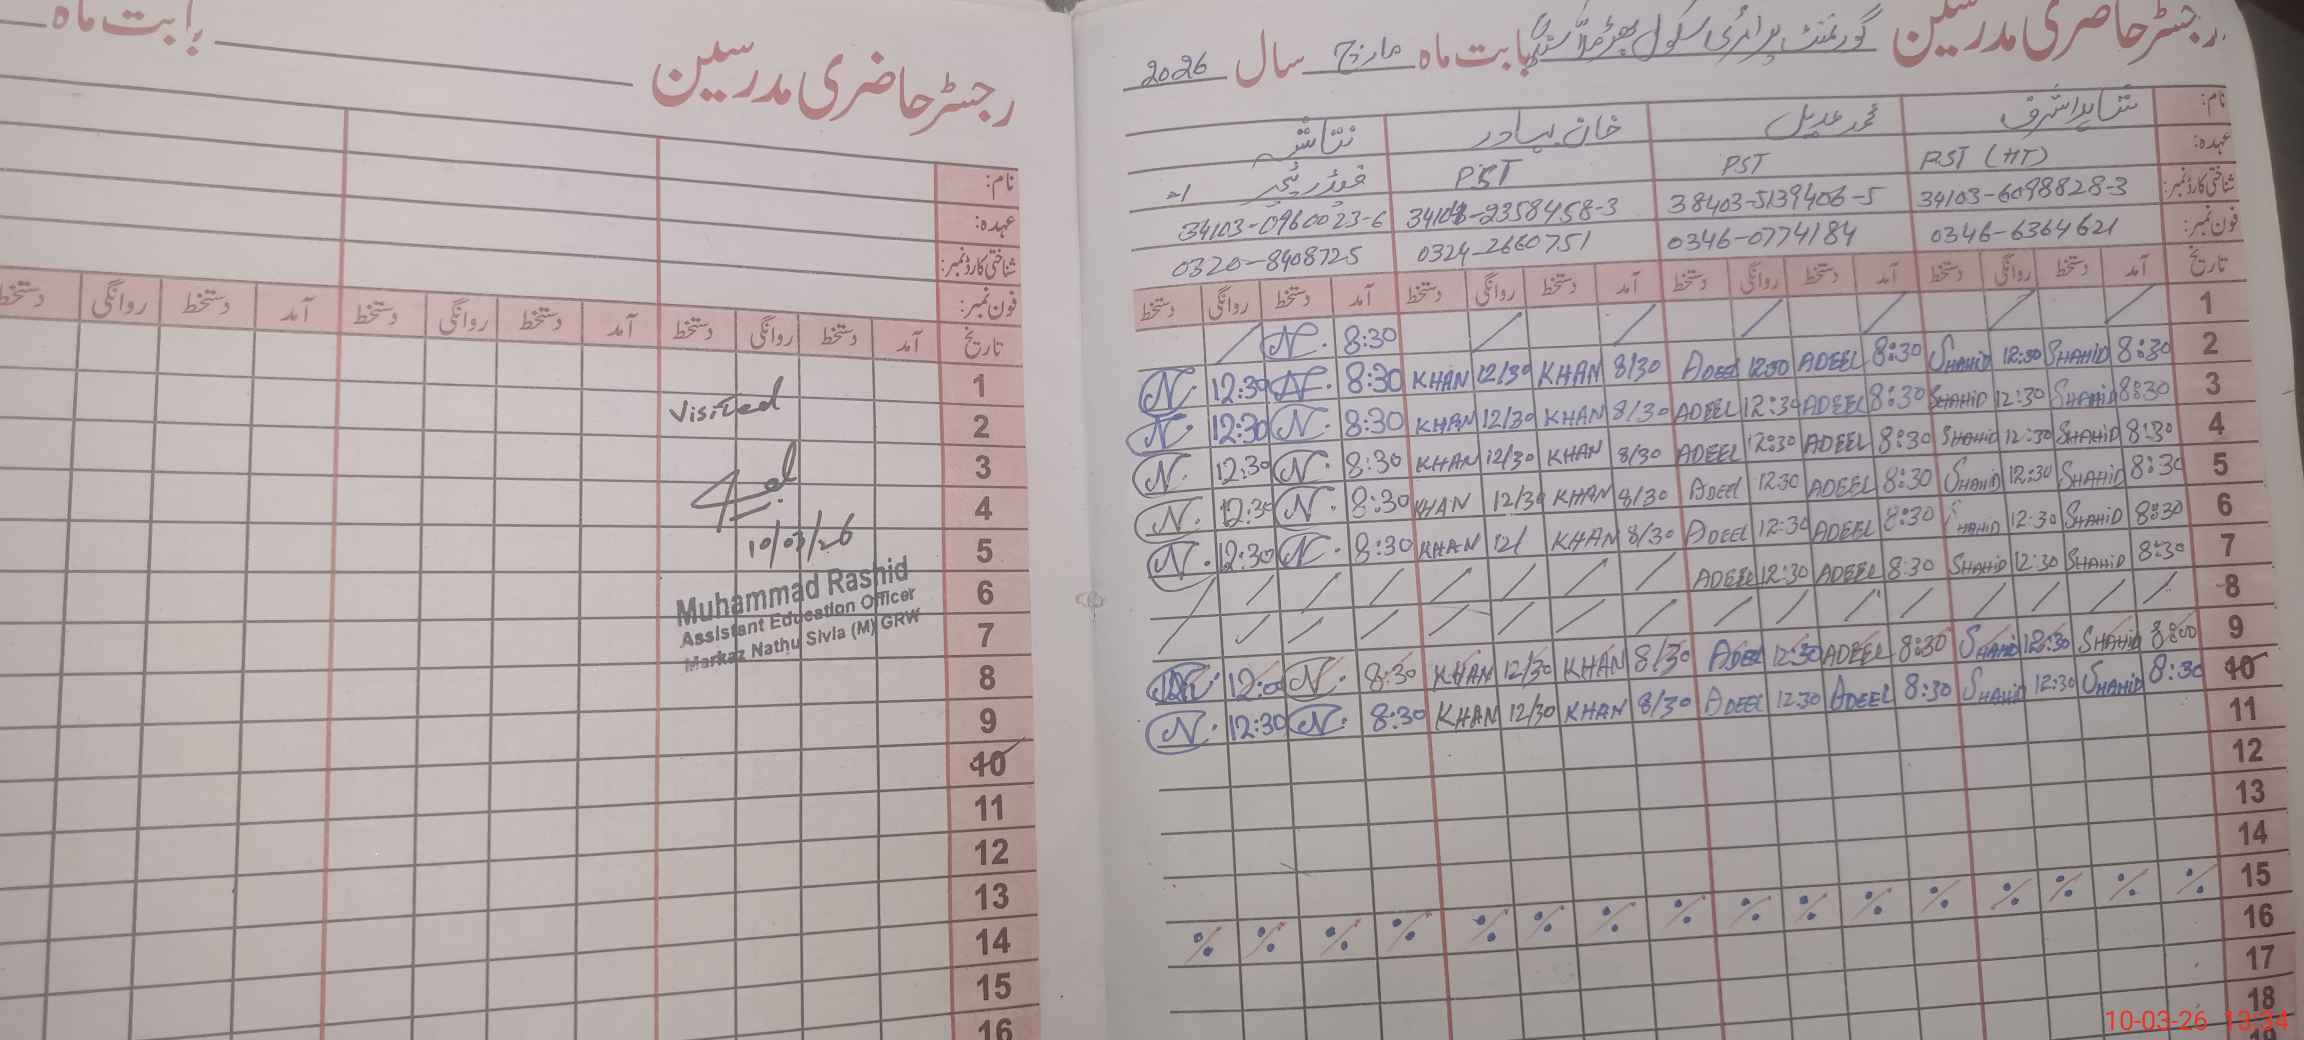 رجسٹر حاضری مدرسین گورنمنٹ پرائمری سکول بابت ماہ مارچ سال 2026
نام: شاہد اشرف محمد عدیل خان بہادر نتاشہ
عہدہ: PST (HT) PST PST
شناختی کارڈ نمبر: 34103-6098828-3 38403-5139406-5 34104-2358458-3 34103-0960023-6
فون نمبر: 0346-6364621 0346-0774184 0324-2660751 0320-8408725
تاریخ آمد دستخط روانگی دستخط آمد دستخط روانگی دستخط آمد دستخط روانگی دستخط آمد دستخط روانگی دستخط
1 / / / / / / 8:30 N. /
2 8:30 SHAHID 12:30 SHAHID 8:30 ADEEL 12:30 ADEEL 8/30 KHAN 12/30 KHAN 8:30 N. 12:30 N.
3 8:30 SHAHID 12:30 SHAHID 8:30 ADEEL 12:30 ADEEL 8/30 KHAN 12/30 KHAN 8:30 N. 12:30 N.
4 8:30 SHAHID 12:30 SHAHID 8:30 ADEEL 12:30 ADEEL 8/30 KHAN 12/30 KHAN 8:30 N. 12:30 N.
5 8:30 SHAHID 12:30 SHAHID 8:30 ADEEL 12:30 ADEEL 8/30 KHAN 12/30 KHAN 8:30 N. 12:30 N.
6 8:30 SHAHID 12:30 SHAHID 8:30 ADEEL 12:30 ADEEL 8/30 KHAN 12/ KHAN 8:30 N. 12:30 N.
7 8:30 SHAHID 12:30 SHAHID 8:30 ADEEL 12:30 ADEEL / / / / / / / /
8 / / / / / / / / / / / / / / / /
9 8:00 SHAHID 12:30 SHAHID 8:30 ADEEL 12:30 ADEEL 8/30 KHAN 12/30 KHAN 8:30 N. 12:00 N.
10 8:30 SHAHID 12:30 SHAHID 8:30 ADEEL 12:30 ADEEL 8/30 KHAN 12/30 KHAN 8:30 N. 12:30 N.
11
12
13
14
15 ٪ ٪ ٪ ٪ ٪ ٪ ٪ ٪ ٪ ٪ ٪ ٪ ٪ ٪ ٪ ٪
16
17
18
19
10-03-26 13:34
رجسٹر حاضری مدرسین بابت ماہ
نام:
عہدہ:
شناختی کارڈ نمبر:
فون نمبر:
تاریخ آمد دستخط روانگی دستخط آمد دستخط روانگی دستخط آمد دستخط روانگی دستخط
1
Visited
2
3
4
10/03/26
5
Muhammad Rashid
Assistant Education Officer
Markaz Nathu Sivia (M) GRW
6
7
8
9
10
11
12
13
14
15
16